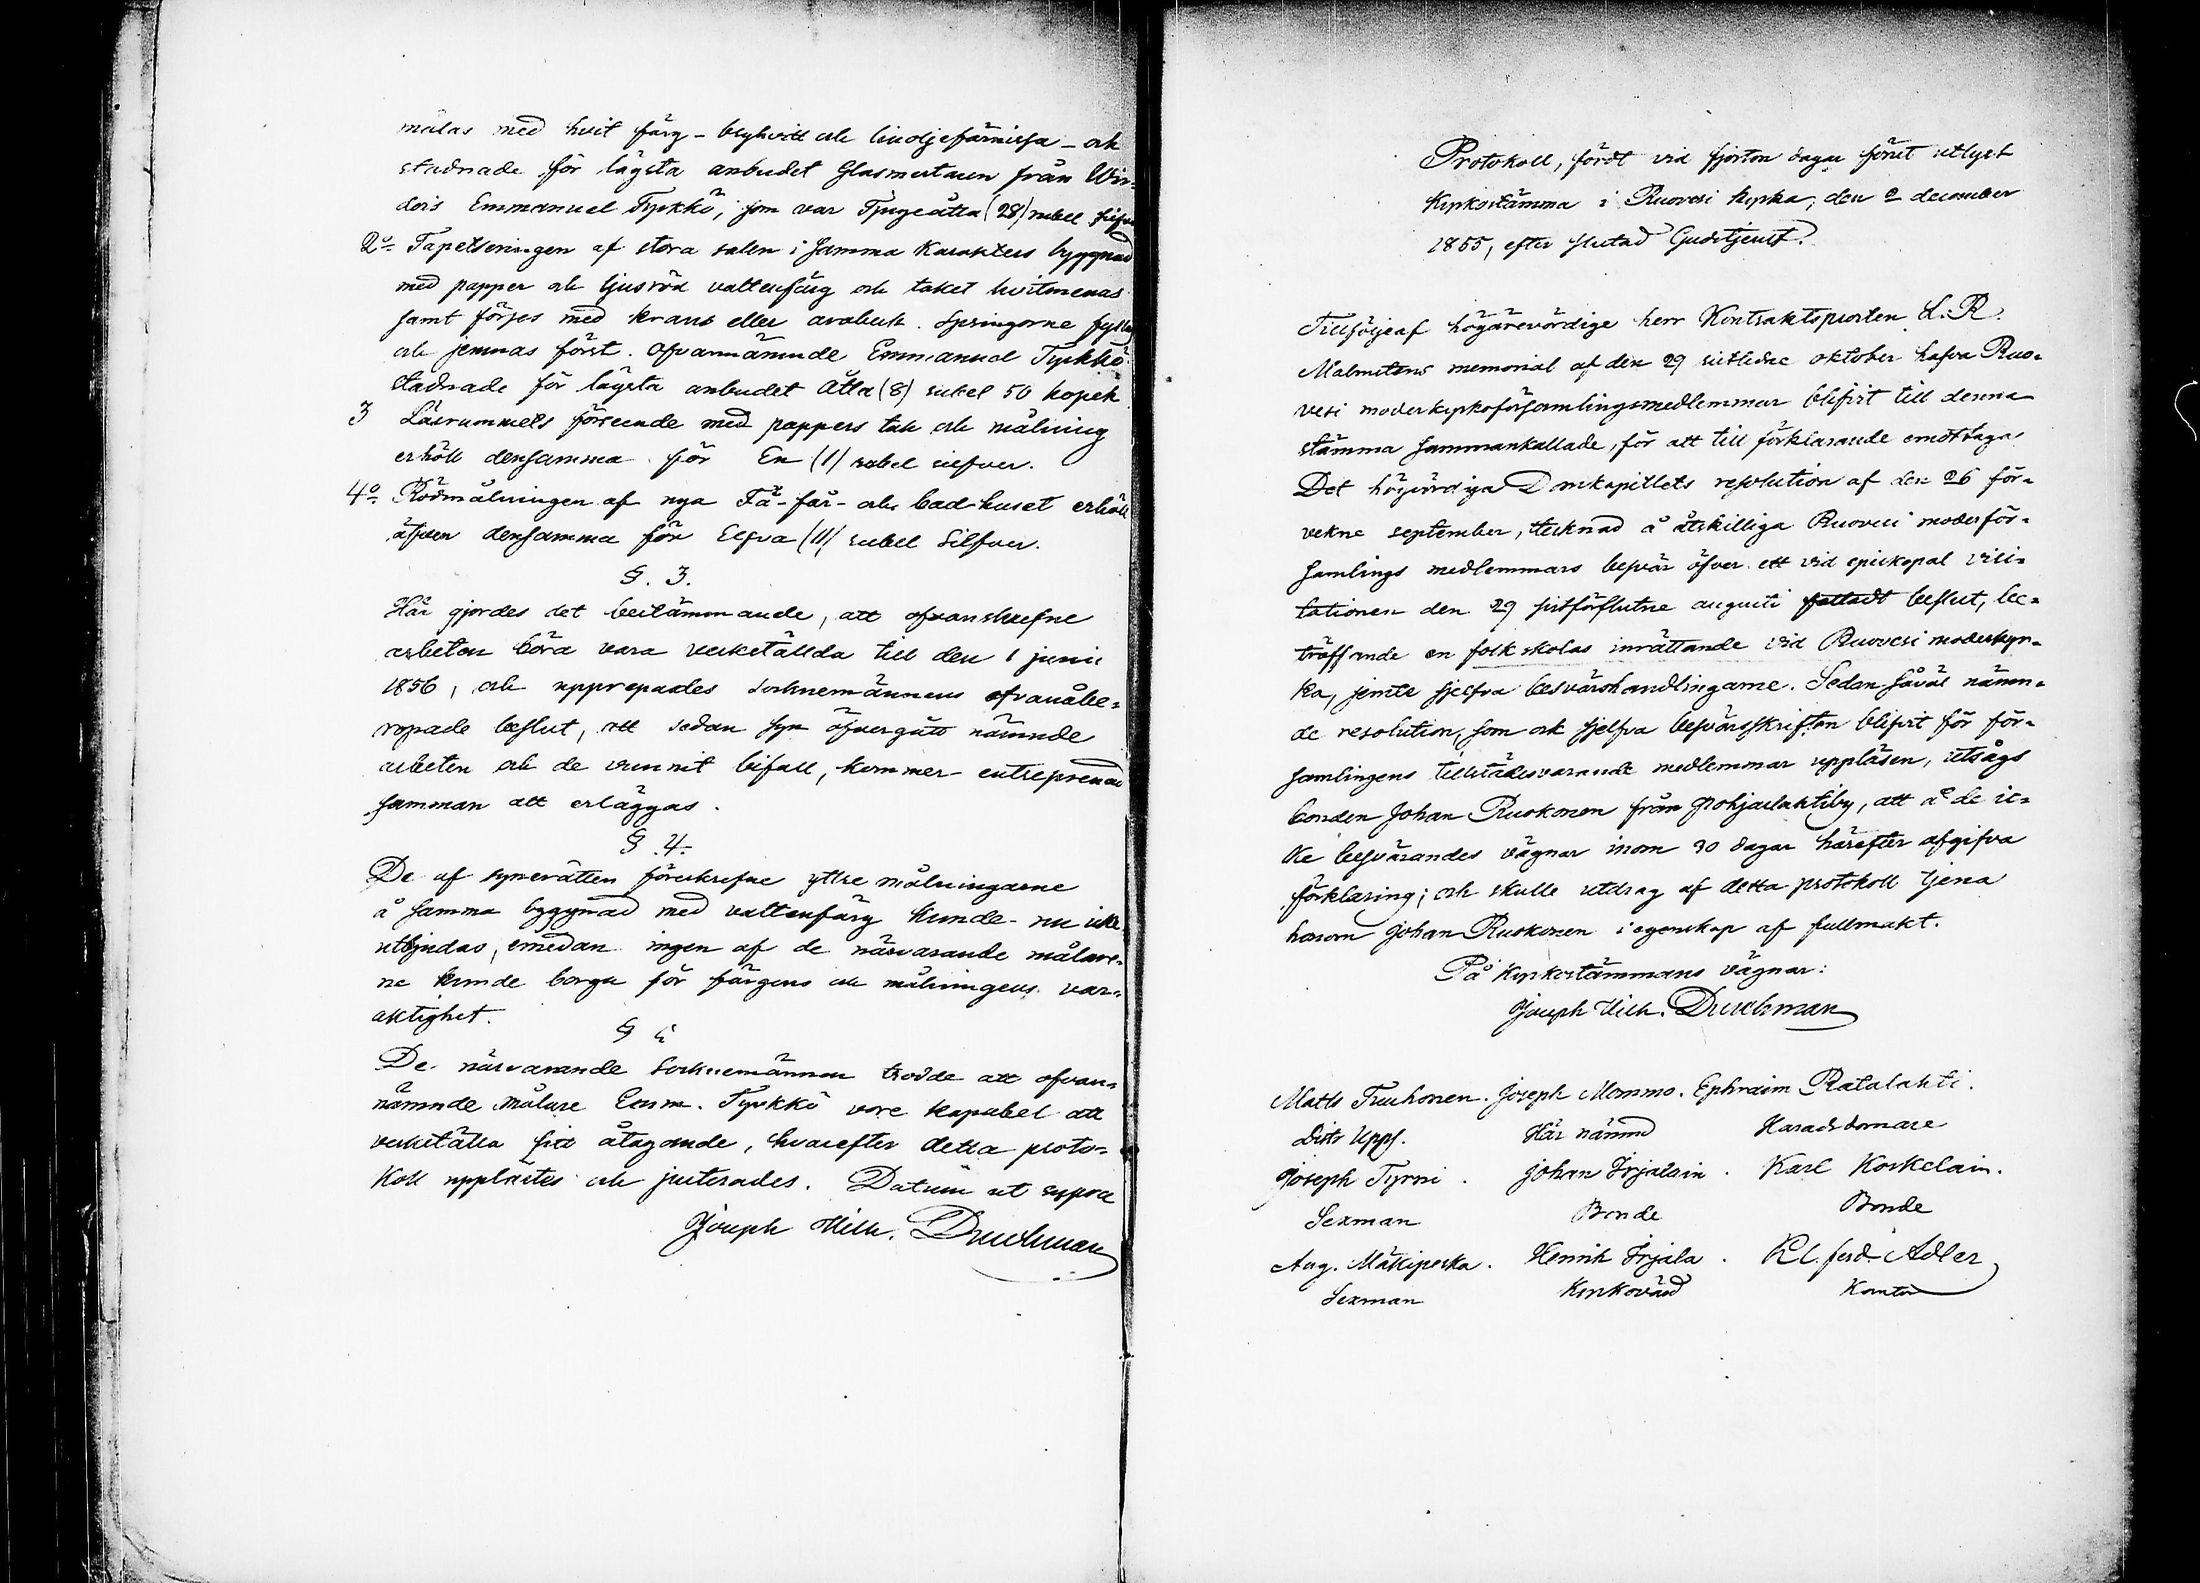 målas med hvit färg - blyhvitt och linoljefärnissa - och
stadnade för lägsta anbudet Glasmästaren från Wir-
dois Emmanuel Tyrkkö, som var Tjugeåtta (28) rubel silfver
2:o Tapetseringen af stora salen i samma Karakters byggnad
med papper och ljusröd vattenfärg och taket hvitmenas
samt förses med krans eller arabesk. Springorne fyllas
och jemnas först. Ofvannämnde Emmanuel Tyrkkö
stadnade för lägsta anbudet Åtta (8) rubel 50 kopek
3 Läsrummets förseende med pappers tak och målning
erhöll densamma för En (1) rubel silfver.
4:o Rödmålningen af nya Fä- får- och bad huset erhöll
äfven densamma för Elfva (11) rubel Silfver.
§. 3.
Här gjordes det bestämmande, att ofvanskrefne
arbeten böra vara verkställda till den 1 junii
1856, och upprepades Socknemännens ofvanåbe-
ropade beslut, att sedan syn öfvergått nämnde
arbeten och de vunnit bifall, kommer entreprenad
summan att erläggas.
§. 4.
De af synerätten föreskrefne yttre målningarne
å samma byggnad med vattenfärg kunde nu icke
utbjudas, emedan ingen af de närvarande målare-
ne kunde borga för färgens och målningens var-
aktighet.
§ 5
De närvarande Socknemännen trodde att ofvan-
nämnde målare Emm. Tyrkkö vore kapabel att
verkställa sitt åtagande, hvarefter detta proto-
koll upplästes och justerades. Datum ut supra
Joseph Wilh. Druchman
Protokoll, fördt vid fjorton dagar förut utlyst
Kyrkostämma i Ruovesi kyrka, den 2 december
1855, efter slutad Gudstjenst.
Tillföljeaf högärevördige herr Kontraktsprosten L. R.
Malmstens memorial af den 29 sistledne oktober hafva Ruo-
vesi moderkyrkoförsamlingsmedlemmar blifvit till denna
stämma sammankallade, för att till förklarande emottaga
Det högvördiga Domkapitlets resolution af den 26 för-
vekne september, tecknad å åtskilliga Ruovesi moderför-
samlings medlemmars besvär öfver ett vid episkopal visi-
tationen den 29 sistförflutne augusti fattadt beslut, be-
träffande en folkskolas inrättande vid Ruovesi moderkyr-
ka, jemte sjelfva besvärshandlingarne. Sedan såväl nämn-
de resolution, som ock sjelfva besvärsskriften blifvit för för-
samlingens tillstädesvarande medlemmar uppläsen, utsågs
bonden Johan Ruokonen från Pohjaslahtiby, att å de ic-
ke besvärandes vägnar inom 30 dagar härefter afgifva
förklaring; och skulle utdrag af detta protokoll tjena
honom Johan Ruokonen i egenskap af fullmakt.
På Kyrkostämmans vägnar:
Joseph Wilh. Druchman
Matts Truhonen. Joseph Mommo. Ephraim Ratalahti.
Distr Upps. Här nämnd Häradsdomare
Joseph Tyrni. Johan Irjalain. Karl Koskelain.
Sexman Bonde Bonde
Aug. Mäkipeska. Henrik Irjala. Kl. ferd. Adler
Sexman Kyrkovärd Kantor